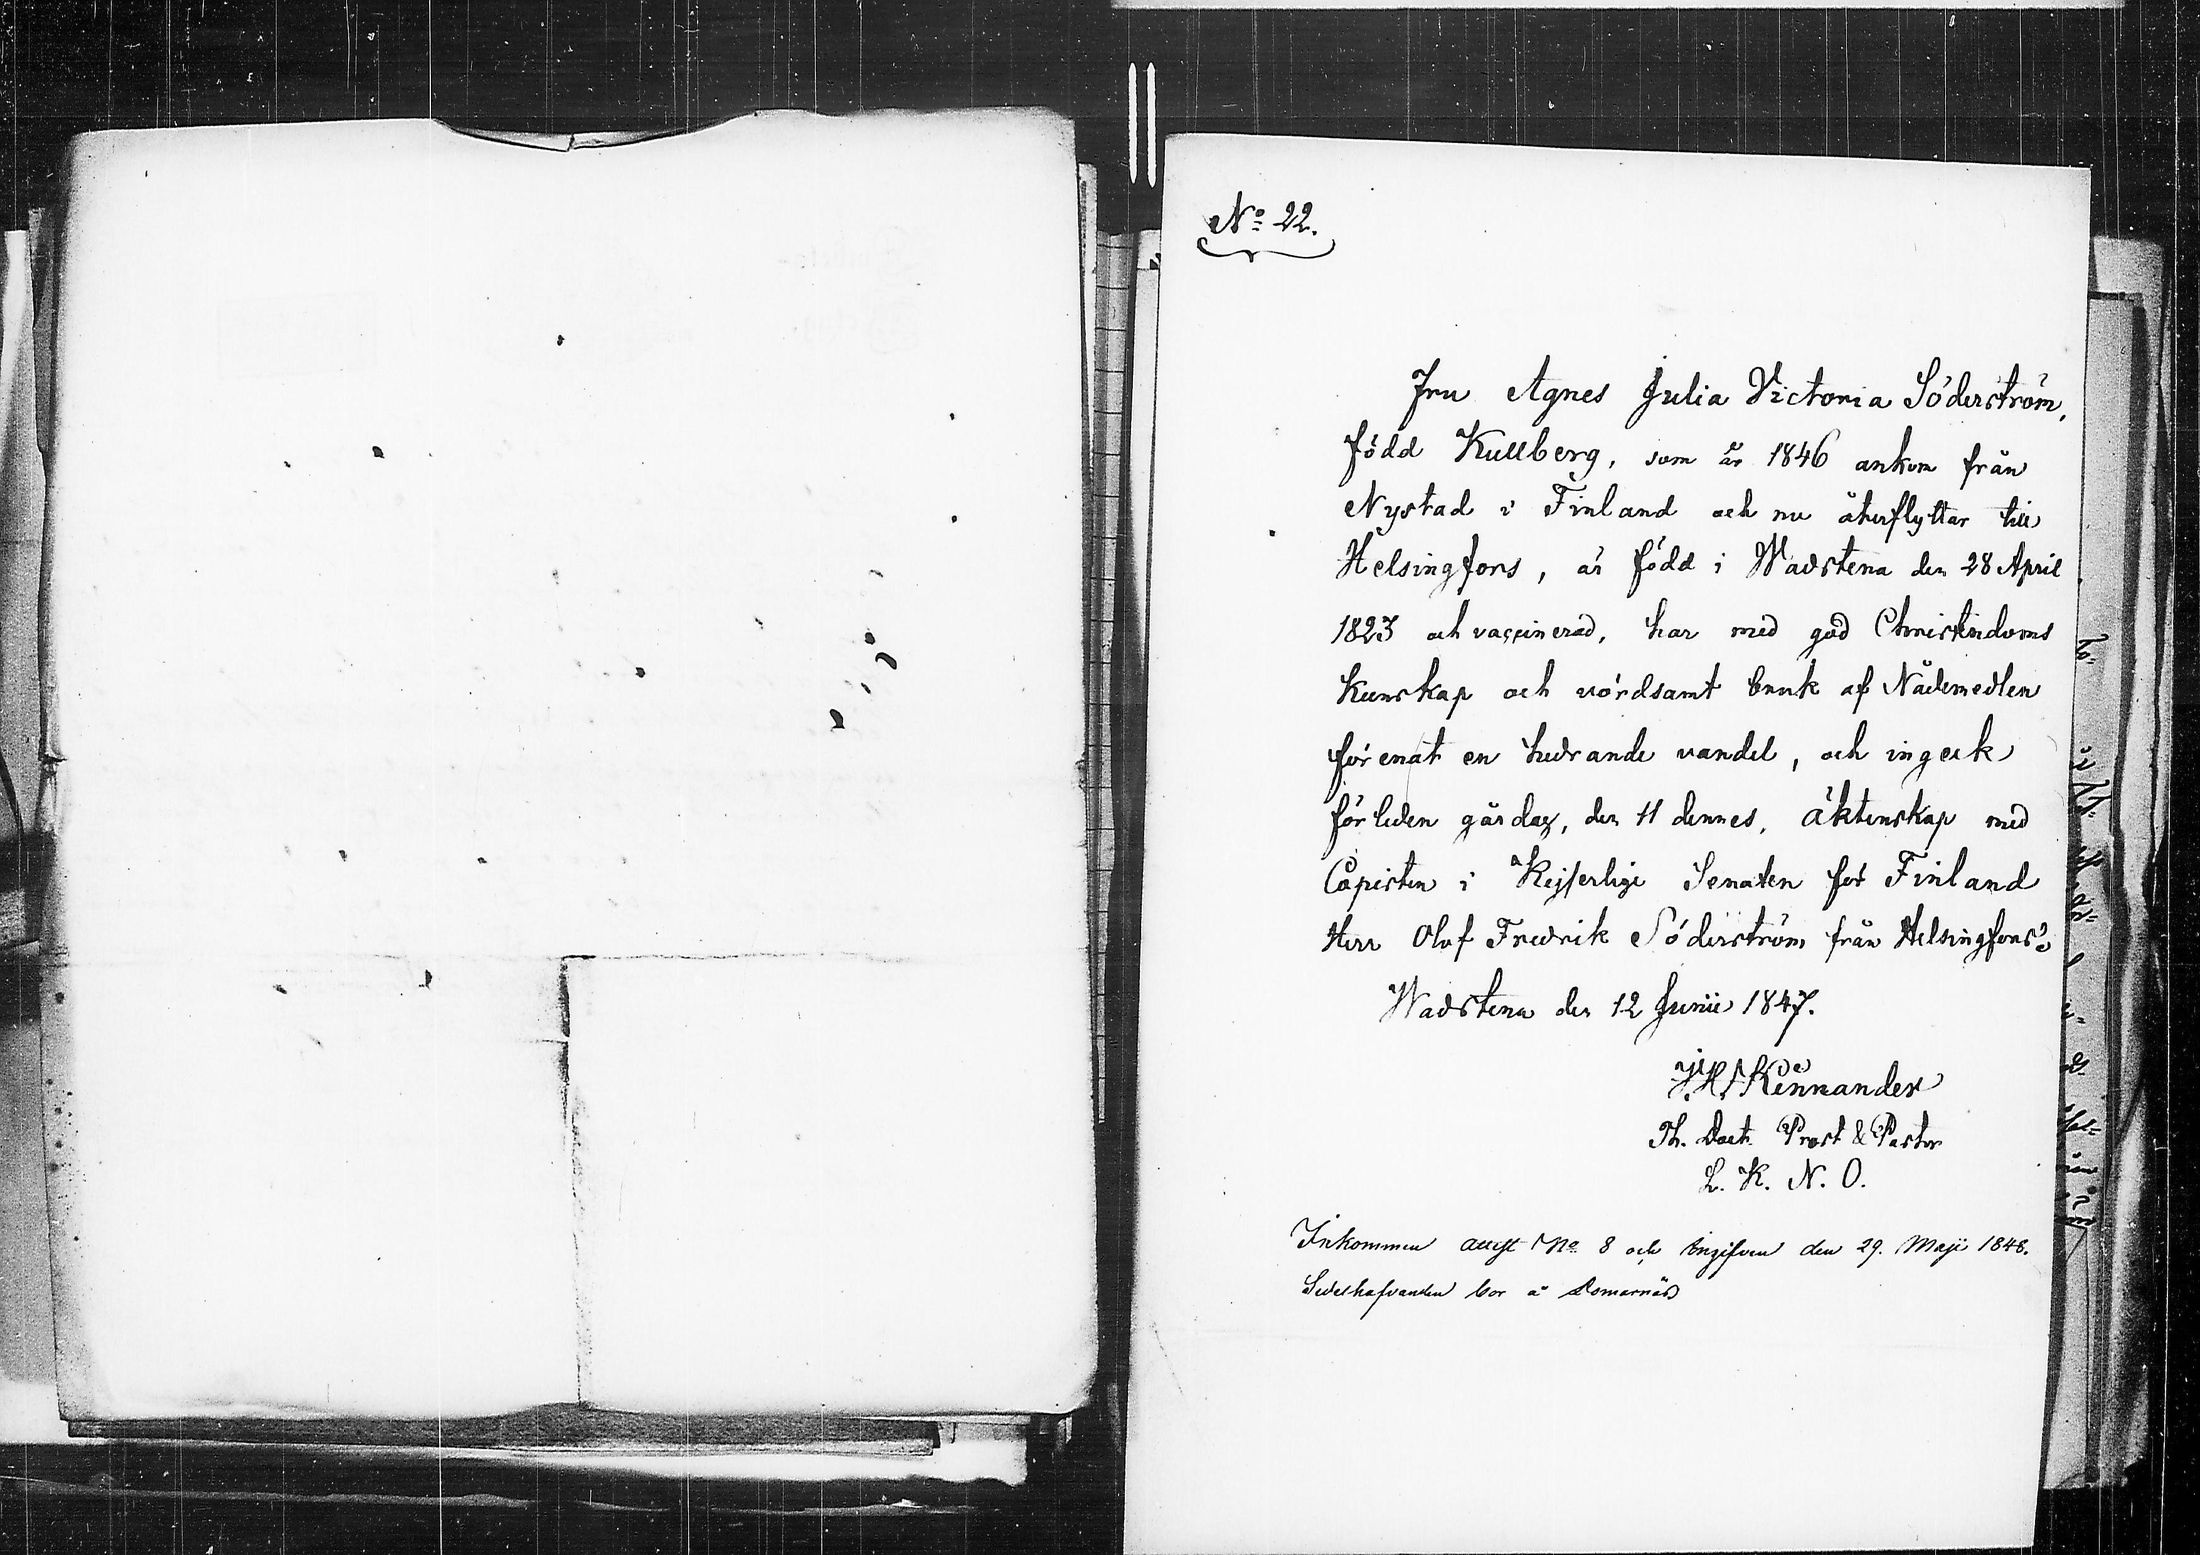 No 22.
Fru Agnes Julia Victoria Söderström,
född Kullberg, som år 1846 ankom från
Nystad i Finland och nu återflyttar till
Helsingfors, är född i Wadstena den 28 April
1823 och vaccinerad, har med god Christendoms
Kunskap och vördsamt bruk af Nådemedlen
förenat en hedrande vandel, och ingeck
förleden gårdag, den 11 dennes, äktenskap med
Copisten i Kejserlige Senaten för Finland
Herr Olof Fredrik Söderström från Helsingfors
Wadstena den 12 Junii 1847.
Th. Doct. Prost & Pastor
L. K. N. O.
Inkommen attest No 8 och ingifven den 29. Maji 1848.
bor å